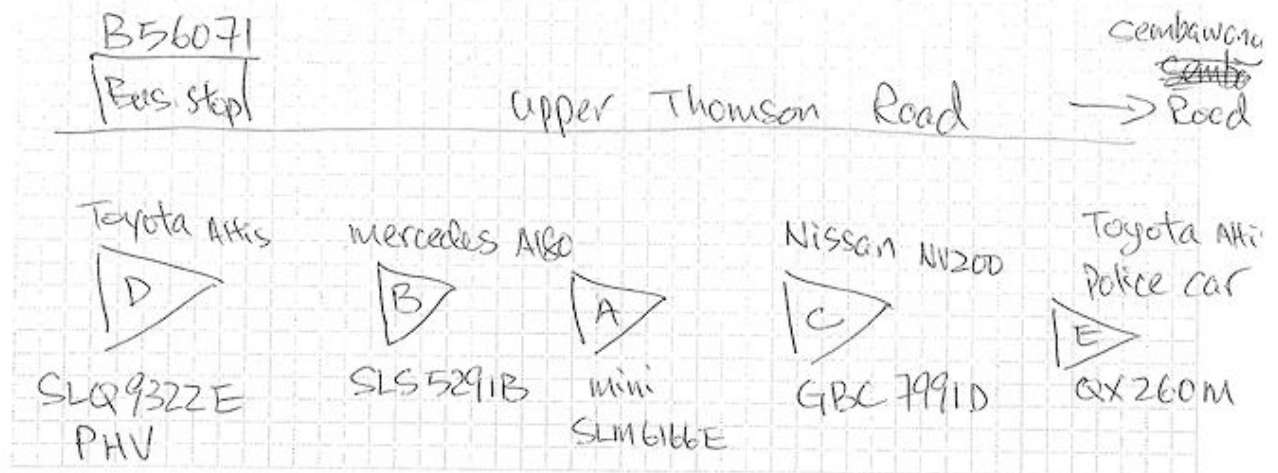 B56071
Bus stop
Upper Thomson Road
Sembawang
→ Road
Toyota Altis
D
SLQ9322E
PHV
mercedes A180
B
SLS5291B
A
mini
SLM6166E
Nissan NV200
C
GBC7991D
Toyota Alti
Police car
E
QX260M